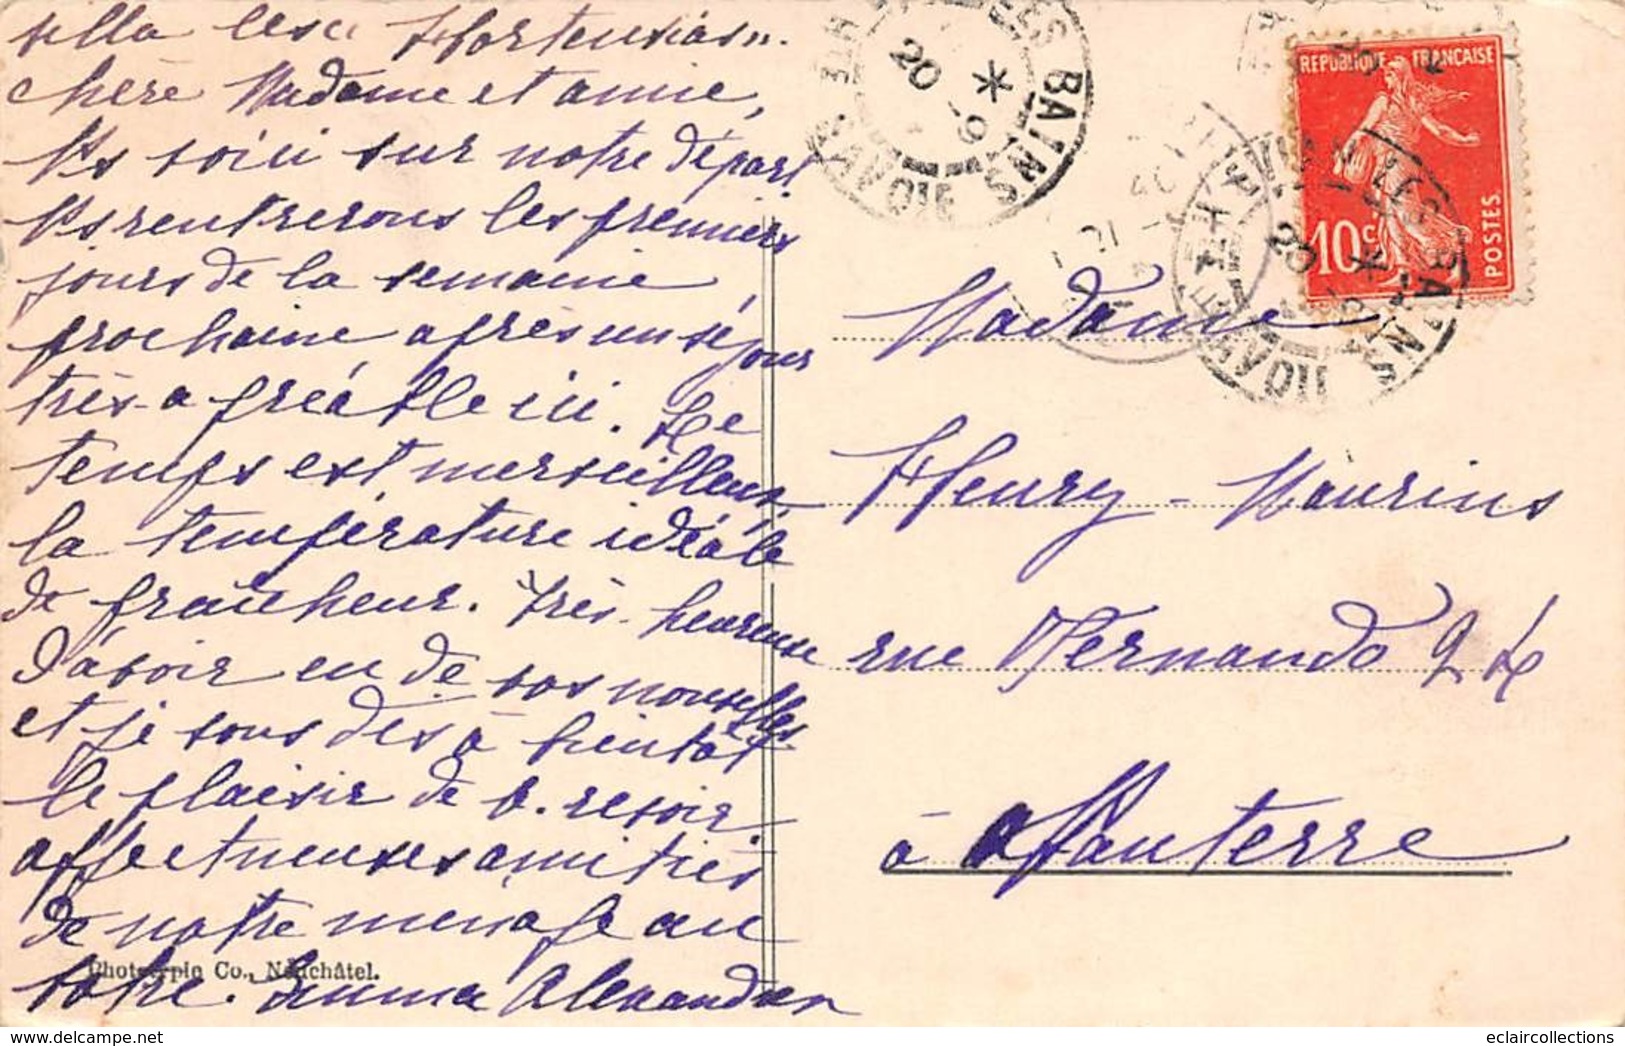 villa les « Hortensias ».
Chère Madame et amie,
Ns voici sur notre départ
Ns rentrerons les premiers
jours de la semaine
prochaine après un séjour
très agréable ici. Le
temps est merveilleux,
la température idéale
de fraîcheur. Très heureuse
d'avoir eu de vos nouvelles
et je vous dis à bientôt
le plaisir de v. revoir.
affectueuses amitiés
de notre ménage au
vôtre. Emma Alexandre
Phototypie Co., Neuchâtel.
LES BAINS
HTE SAVOIE
20 * -9
REPUBLIQUE FRANÇAISE
10c
POSTES
EVIAN LES BAINS
HTE SAVOIE
20 *
Madame
Henry-Maurins
rue Vernando 9
à Nanterre
eclaircollections
delcampe.net